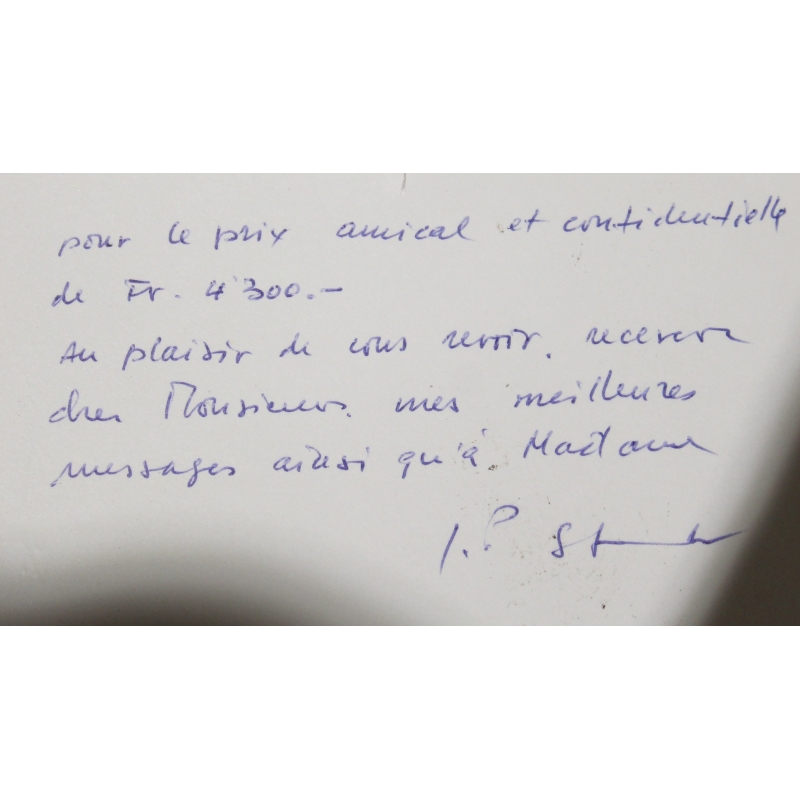 pour le prix amical et confidentielle
de Fr. 4'300.-
Au plaisir de vous revoir, recevez
cher Monsieur, mes meilleures
messages ainsi qu'à Madame
J.P.